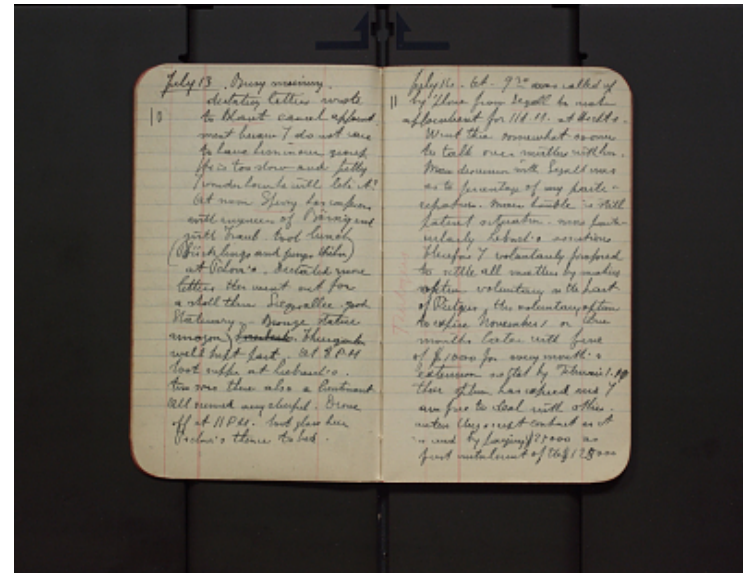 July 13. Busy morning.
10 dictating letters wrote
to cancel appoint
ment because I do not care
to have him in our group
He is too slow and petty
I wonder how he will take it?
At noon has
with engineers of and
with Traub. took lunch
(Bücklings and junge Hühn)
at . Dictated more
letters then went out for
a stroll thru Siegesallee good
Statuary - Bronze statue
amazon Thiergarten
well kept park. At 8 P.M
took supper at Liebund's.
there also a lieutenant
all seemed very cheerful. Drove
off at 11 P.M. took glass beer
thence to bed.
July 14. At 9 30 was called up
11 by 'phone from Segall to make
appointment for 11 A.M. at Hecht's.
Went there somewhat sooner
to talk over matters with him.
Main discussion with Segall was
as to percentage of my parti-
cipation. Main trouble is still
patent situation - more partic-
ularly
Therefore I voluntarily proposed
to settle all matters by making
option voluntary on the part
of Rütgers, this voluntary option
to expire November 1 or three
months later with fine
of $1000 for every month's
extension so that by Februari 1. 1910
their option has expired and I
am free to deal with others.
unless they accept contract as it
is and by paying $25000 as
first instalment of the $125000